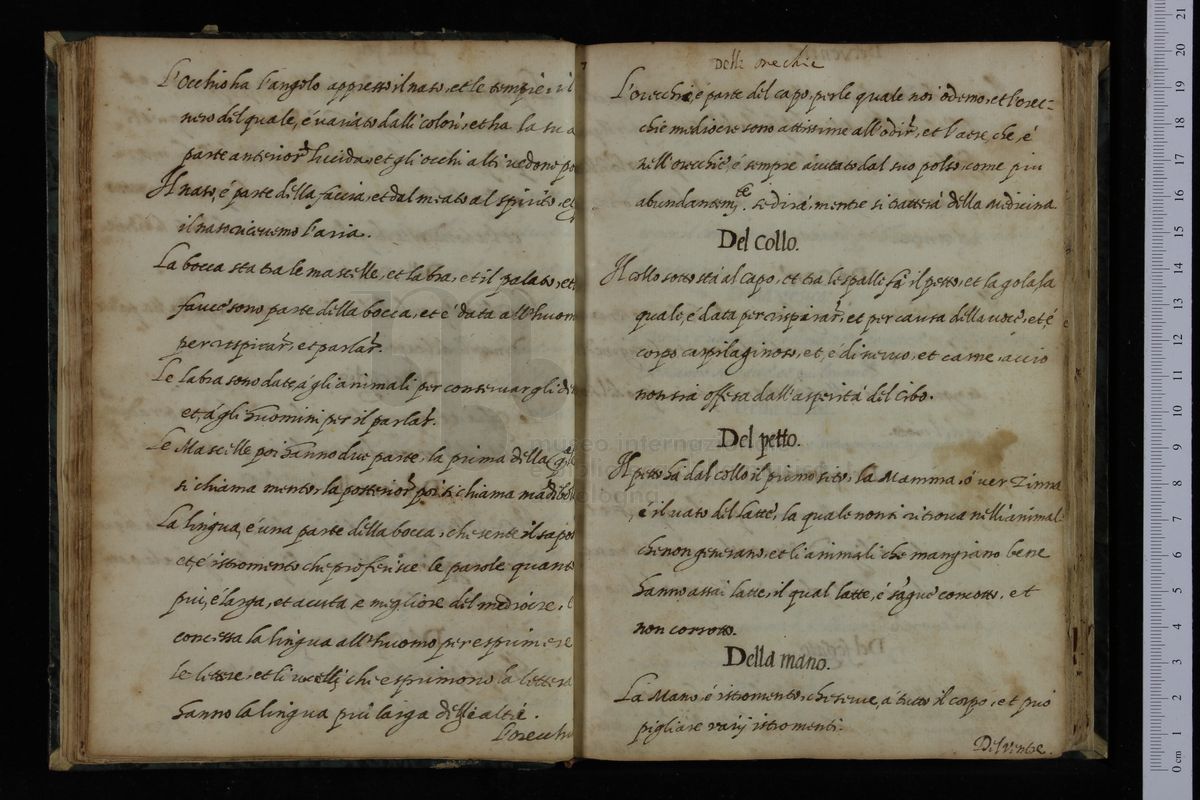 L'occhio ha l'angolo appresso il naso, et le tempie, il
nero del quale, è variato dalli colori, et ha la sua
parte anterior lucida, et gli occhi alti vedono po
Il naso, è parte della faccia, et dal meato al spirito, et
il naso riceuemo l'aria.
La bocca sta tra le mascelle, et labra, et il palato, et
fauce sono parte della bocca, et è data all'huom
per respirar, et parlar.
Le labra sono date à gli animali per conseruar gli de
et, à gli huomini per il parlar.
Le Mascelle poi hanno due parte, la prima della
si chiama mento, la posterior poi si chiama madibol
La lingua, è una parte della bocca, che sente il sapo
et, è istromento che proferisce le parole quant
piu, è larga, et acuta, e megliore del mediocre,
concessa la lingua all'huomo per esprimere
le lettere, et li uccelli che esprimono la lettera
hanno la lingua piu larga dell'altre.
L'orecchi
Delli orechie
L'orecchie, è parte del capo, per le quale noi odemo, et l'orec-
chie mediocre sono attissime all'odir, et l'aere, che, è
nell'orecchie, è sempre aiutato dal suo polso, come piu
abundantemte. se dirà, mentre si tratterà della Medicina
Del collo.
Il collo sotto stà al capo, et tra le spalli hà il petto, et la gola, la
quale, è data per respirar, et per causa della uoce, et, è
corpo cartilaginoso, et, è di neruo, et carne, acciò
non sia offesa dall'asperità del cibo.
Del petto.
Il petto hà dal collo il primo sito, la Mamma, ò uer Zinna
è il uaso del latte, la quale non si ritroua nelli animal
che non generano, et li animali che mangiano bene
hanno assai latte, il qual latte, è sague concotto, et
non corrotto.
Della mano.
La Mano, è istromento, che serue, a tutto il corpo, et può
pigliare varij istromenti.
Del Ventre.
museo internazionale
bologna
0 cm 1 2 3 4 5 6 7 8 9 10 11 12 13 14 15 16 17 18 19 20 21